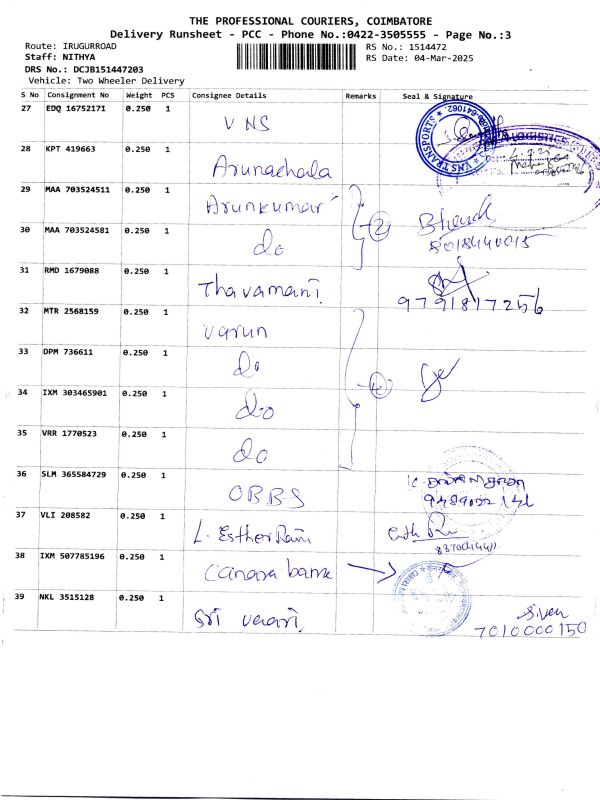 THE PROFESSIONAL COURIERS, COIMBATORE
Delivery Runsheet - PCC - Phone No.:0422-3505555 - Page No.:3
Route: IRUGURROAD
RS No.: 1514472
Staff: NITHYA
RS Date: 04-Mar-2025
DRS No.: DCJB151447203
Vehicle: Two Wheeler Delivery
S No Consignment No Weight PCS Consignee Details Remarks Seal & Signature
27 EDQ 16752171 0.250 1 VNS
28 KPT 419663 0.250 1 Arunachala
29 MAA 703524511 0.250 1 Arunkumar
30 MAA 703524581 0.250 1 do ②
31 RMD 1679088 0.250 1 Thavamani 9791817256
32 MTR 2568159 0.250 1 Varun
33 DPM 736611 0.250 1 do
34 IXM 303465901 0.250 1 do ④
35 VRR 1770523 0.250 1 do
36 SLM 365584729 0.250 1 OBBS
37 VLI 208582 0.250 1 L. Esther Rani
38 IXM 507785196 0.250 1 Canara bank
39 NKL 3515128 0.250 1 Sri Vaari 7010000150